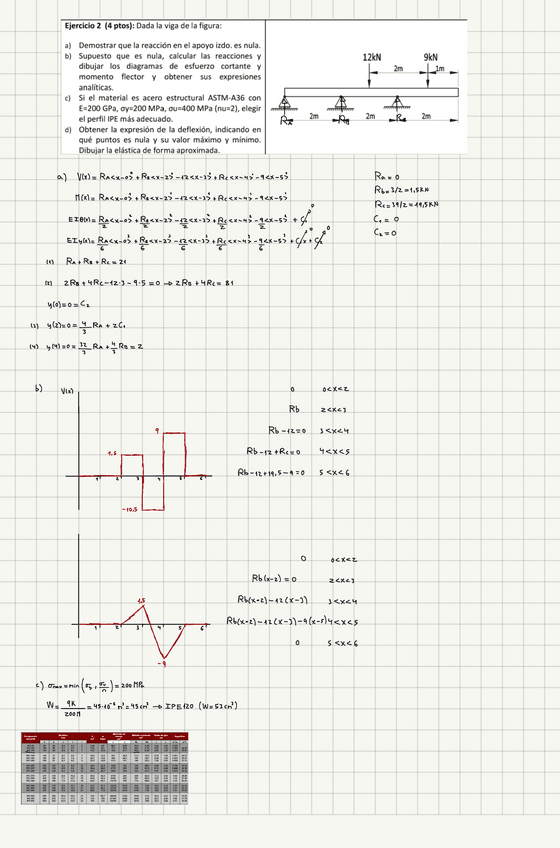 Ejercicio 2 (4 ptos): Dada la viga de la figura:
a) Demostrar que la reacción en el apoyo izdo. es nula.
b) Supuesto que es nula, calcular las reacciones y
dibujar los diagramas de esfuerzo cortante y
momento flector y obtener sus expresiones
analíticas.
c) Si el material es acero estructural ASTM-A36 con
E=200 GPa, σy=200 MPa, σu=400 MPa (nu=2), elegir
el perfil IPE más adecuado.
d) Obtener la expresión de la deflexión, indicando en
qué puntos es nula y su valor máximo y mínimo.
Dibujar la elástica de forma aproximada.
12kN 9kN
2m 1m
RA RB Rc
2m 2m 2m
a) V(x) = RA<x-0>⁰ + RB<x-2>⁰ -12<x-3>⁰ + Rc<x-4>⁰ -9<x-5>⁰
M(x) = RA<x-0>¹ + RB<x-2>¹ -12<x-3>¹ + Rc<x-4>¹ -9<x-5>¹
EIθ(x) = RA/2<x-0>² + RB/2<x-2>² -12/2<x-3>² + Rc/2<x-4>² -9/2<x-5>² + C₁ 0
EIy(x) = RA/6<x-0>³ + RB/6<x-2>³ -12/6<x-3>³ + Rc/6<x-4>³ -9/6<x-5>³ + C₁x + C₂ 0 0
(1) RA + RB + Rc = 21
(2) 2RB + 4Rc -12·3 - 9·5 = 0 → 2RB + 4Rc = 81
y(0) = 0 = C₂
(3) y(2) = 0 = 4/3 RA + 2C₁
(4) y(4) = 0 = 32/3 RA + 4/3 RB = 2
Ra = 0
Rb = 3/2 = 1,5kN
Rc = 39/2 = 19,5kN
C₁ = 0
C₂ = 0
b) V(x)
1.5
9
-10.5
1 2 3 4 5 6
0 0<x<2
Rb 2<x<3
Rb -12=0 3<x<4
Rb -12+Rc=0 4<x<5
Rb -12+19,5-9=0 5<x<6
1,5
-9
1 2 3 4 5 6
0 0<x<2
Rb(x-2) = 0 2<x<3
Rb(x-2) -12(x-3) 3<x<4
Rb(x-2) -12(x-3) -9(x-5) 4<x<5
0 5<x<6
c) σmax = min(σy, σu/n) = 200 MPa
W = 9K/200M = 45·10⁻⁶ m³ = 45 cm³ → IPE120 (W=53cm³)